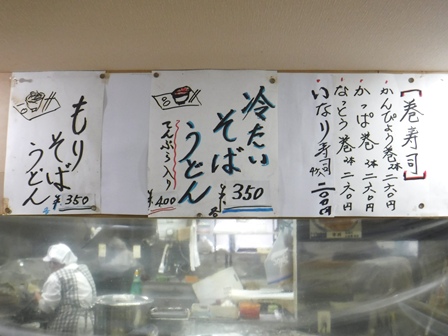 [巻寿司]
かんぴょう巻 2本 二六〇円
かっぱ巻 2本 二六〇円
なっとう巻 2本 二六〇円
いなり寿司 4ケ入 二〇〇円
冷たい
そば
うどん
¥350
てんぷら入り
¥400
もり
そば
うどん
¥350